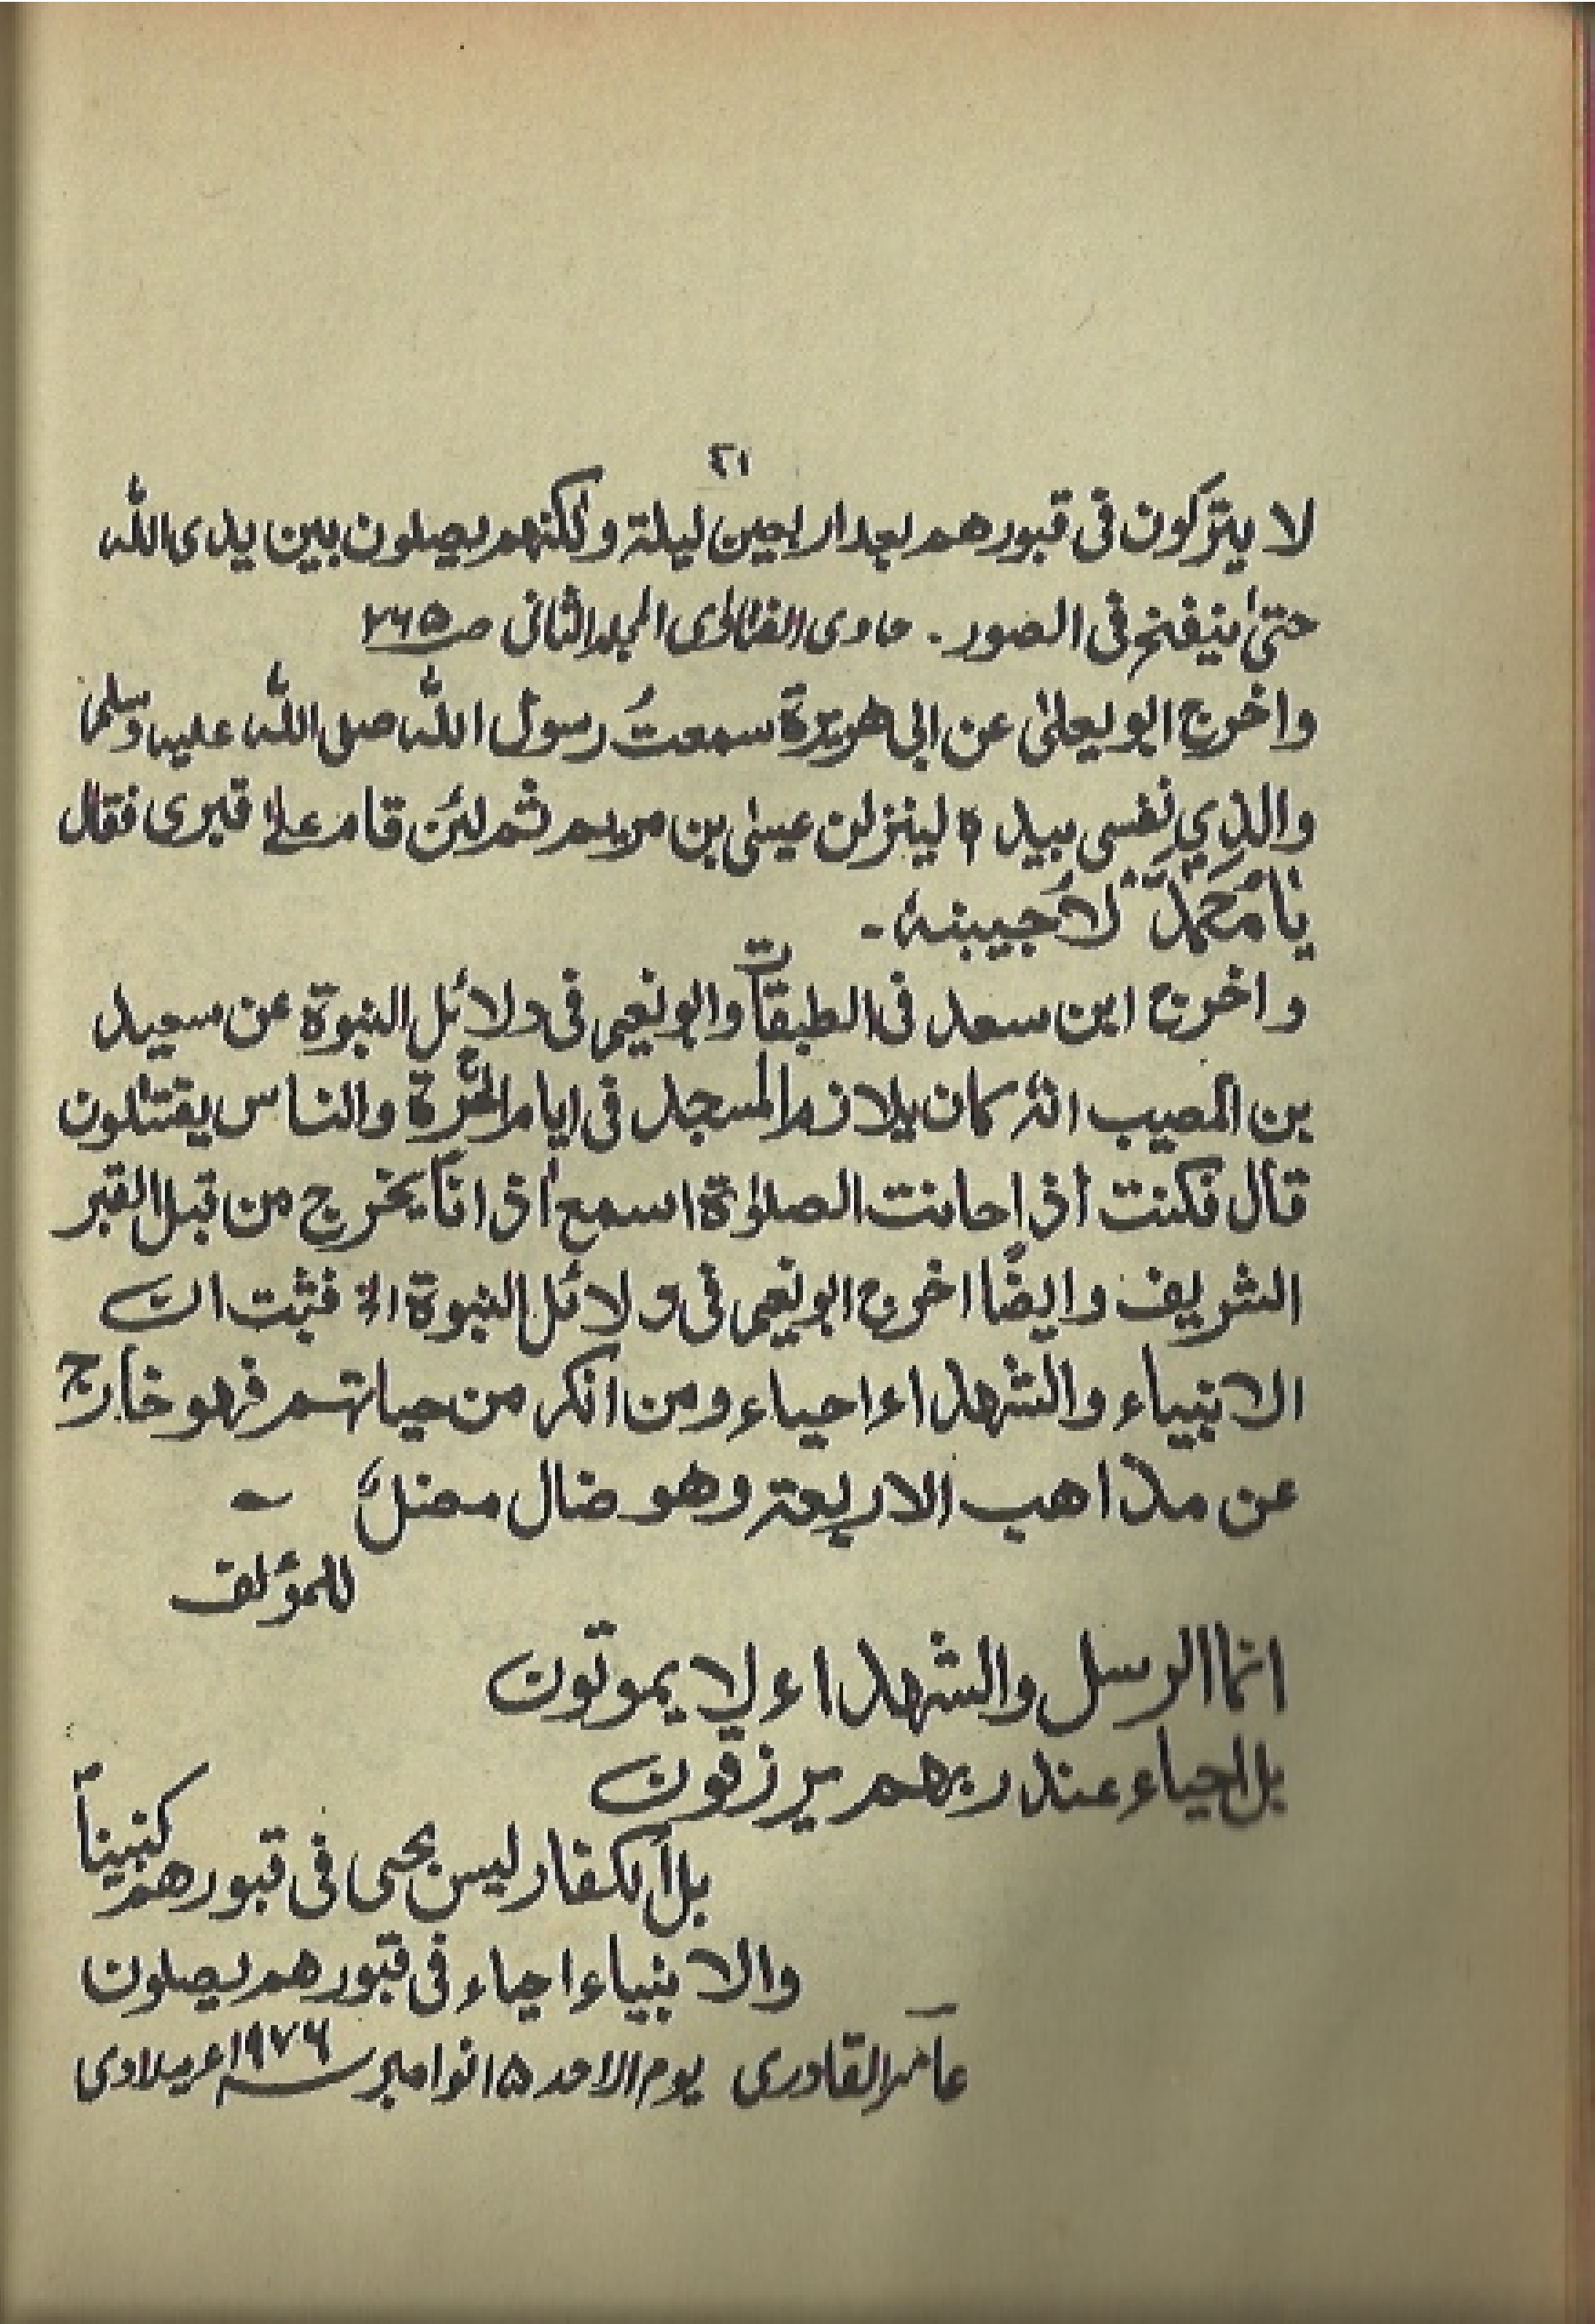 ٢١
لا يتركون فى قبورهم بعد اربعين ليلة ولكنهم يصلون بين يدى الله
حتىٰ ينفخ فى الصور. حاوى الفتاوىٰ المجلد الثانى ص ٢٦٥
واخرج ابو يعلىٰ عن ابى هريرة سمعتُ رسول الله صلى الله عليه وسلم
والذي نفسى بيده لينزلن عيسىٰ بن مريم ثم لئن قام علىٰ قبرى فقال
يَا مُحَمَّدُ لَأُجيبنهٗ -
واخرج ابن سعد فى الطبقات وابو نعيم فى دلائل النبوة عن سعيد
بن المصيب انهٗ كان يلازم المسجد فى ايام الحُرَّة والناس يقتتلون
قال فكنت اذ احانت الصلوٰة اسمع اذ اناً يخرج من قبل القبر
الشريف وايضًا اخرج ابو نعيم فى دلائل النبوة الخ فثبت ان
الانبياء والشهداء احياء ومن انكر من حياتهم فهو خارج
عن مذاهب الاربعة وهو ضال مضلٌ
للمؤلف
انما الرسل والشهداء لا يموتون
بل احياء عند ربهم يرزقون
بل الكفار ليس بحى فى قبورهم كنبيناً
والانبياء احياء فى قبورهم يصلون
عامر القادرى يوم الاحد ١٥ نوامبر سنة ١٩٧٦ء ميلادى